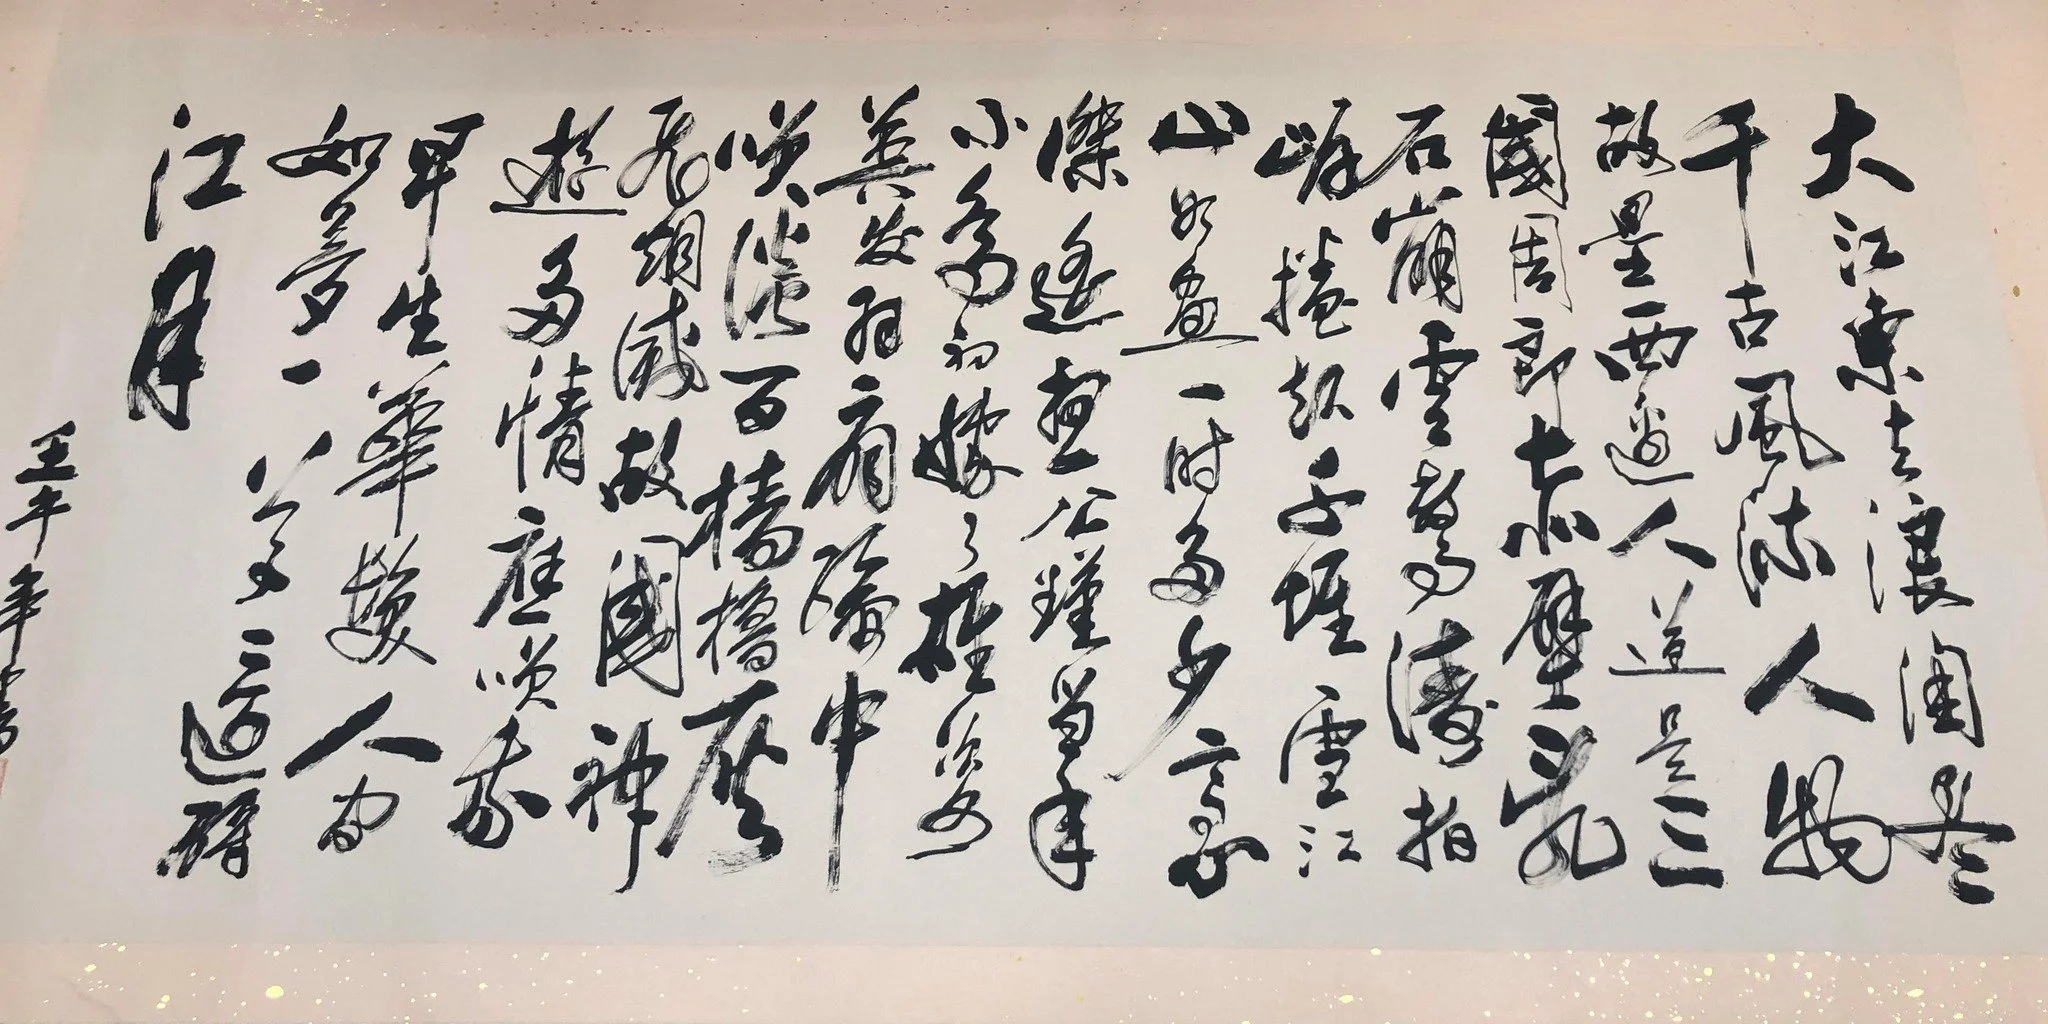 大江東去浪淘尽
千古風流人物
故壘西邊人道是三
國周郎赤壁乱
石崩雲驚濤拍
岸捲起千堆雪江
山如畫一时多少豪
傑遙想公瑾当年
小喬初嫁了雄姿
英发羽扇綸巾
咲談间檣櫓灰
飛烟滅故國神
遊多情應咲我
早生華髮人间
如夢一尊還酹
江月
壬午年書